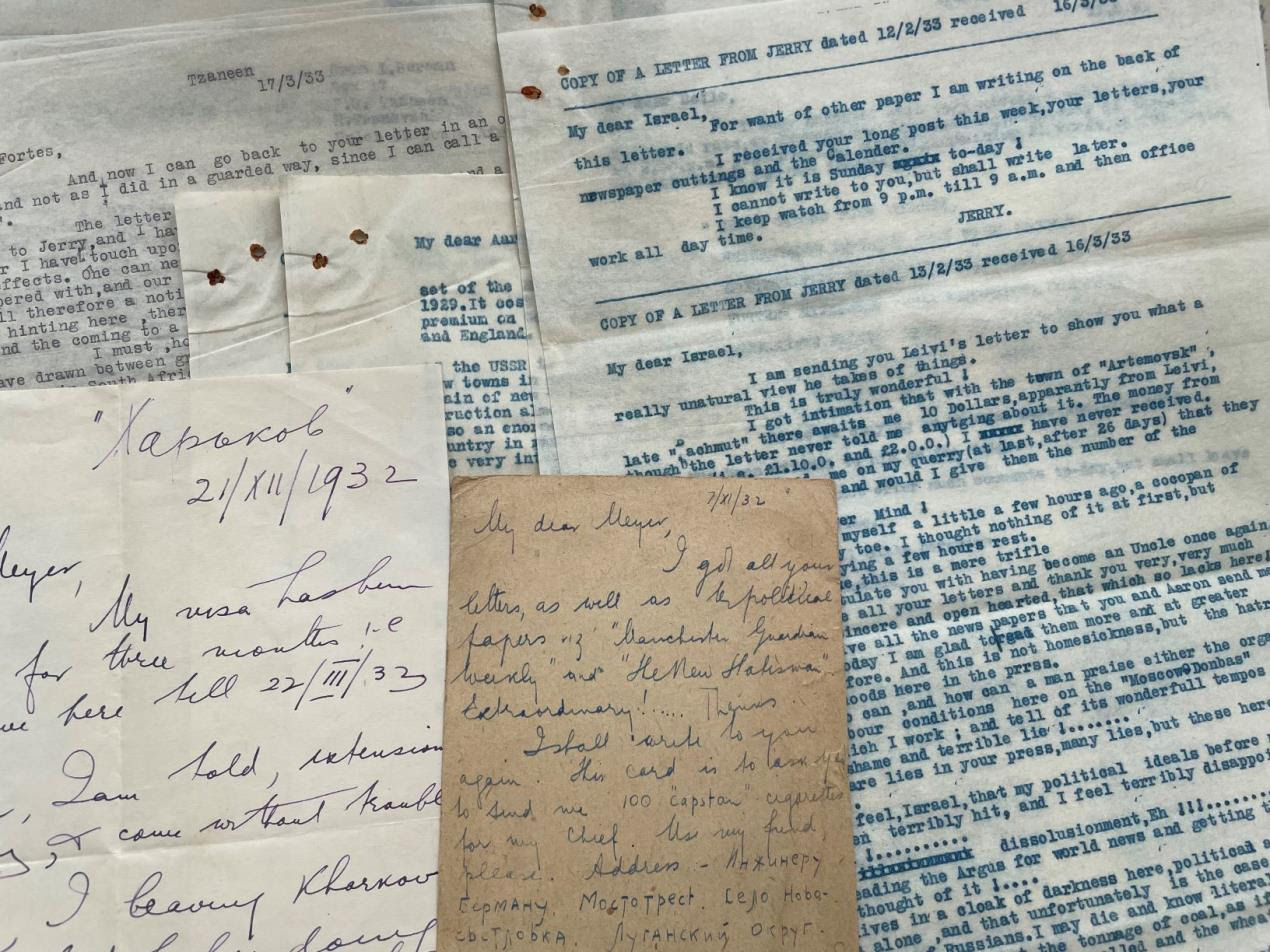 Tzaneen
17/3/33
Fortes,
And now I can go back to your letter in an o
and not as I did in a guarded way, since I can call a
The letter
to Jerry,and I ha
r I have touch upo
ffects. One can ne
pered with,and our
ll therefore a noti
hinting here ,ther
nd the coming to a
I must ,ho
ave drawn between g
South Afri
My dear Aar
set of the
1929.It cos
premium on
and England.
the USSR
w towns i
ain of new
ruction al
so an eno
untry in
e very int
COPY OF A LETTER FROM JERRY dated 12/2/33 received 16/3/33
My dear Israel,
For want of other paper I am writing on the back of
this letter.
I received your long post this week,your letters,your
newspaper cuttings and the Calender.
I know it is Sunday to-day !
I cannot write to you,but shall write later.
I keep watch from 9 p.m. till 9 a.m. and then office
work all day time.
JERRY.
COPY OF A LETTER FROM JERRY dated 13/2/33 received 16/3/33
My dear Israel,
I am sending you Leivi's letter to show you what a
really unatural view he takes of things.
This is truly wonderful !
I got intimation that with the town of "Artemovsk" ,
late "Bachmut" there awaits me 10 Dollars,apparantly from Leivi,
though the letter never told me anytging about it. The money from
£1.10.0. and £2.0.0.) I have never received.
me on my querry(at last,after 26 days) that they
and would I give them the number of the
er Mind !
myself a little a few hours ago,a cocopan of
toe. I thought nothing of it at first,but
ying a few hours rest.
e,this is a mere trifle
ulate you with having become an Uncle once again.
all your letters and thank you very,very much
incere and open hearted,that which so lacks here!
ve all the news papers that you and Aaron send me
day I am glad to read them more and at greater
fore. And this is not homesickness,but the hatr
oods here in the prrss.
can ,and how can a man praise either the orga
our conditions here on the "Moscow-Donbas"
ich I work ; and tell of its wonderfull tempos
shame and terrible lie !.......
are lies in your press,many lies,but these here
feel,Israel,that my political ideals before
en terribly hit, and I feel terribly disappoi
!..........
dissolusionment,Eh !!!........
ading the Argus for world news and getting t
thought of it !....
ives in a cloak of darkness here,political a
alone , and that unfortunately is the case
Russians.I may die and know literal
the tonnage of coal,as if
lled and the whea
"Харьков"
21/XII/1932
Meyer,
My visa has been
for three months i.e
here till 22/III/33
I am told, extension
come without troubl
I leaving Kharkov
7/XI/32
My dear Meyer,
I got all your
letters, as well as the political
papers viz "Manchester Guardian
Weekly" and "The New Statesman".
Extraordinary!.... Thanks
I shall write to you
again. This card is to ask yo
to send me 100 "Capstan" cigarettes
for my Chief. Use my fund,
please. Address - Инжинеру
Герману. Мостотрест. Село Ново-
Луганский Округ.